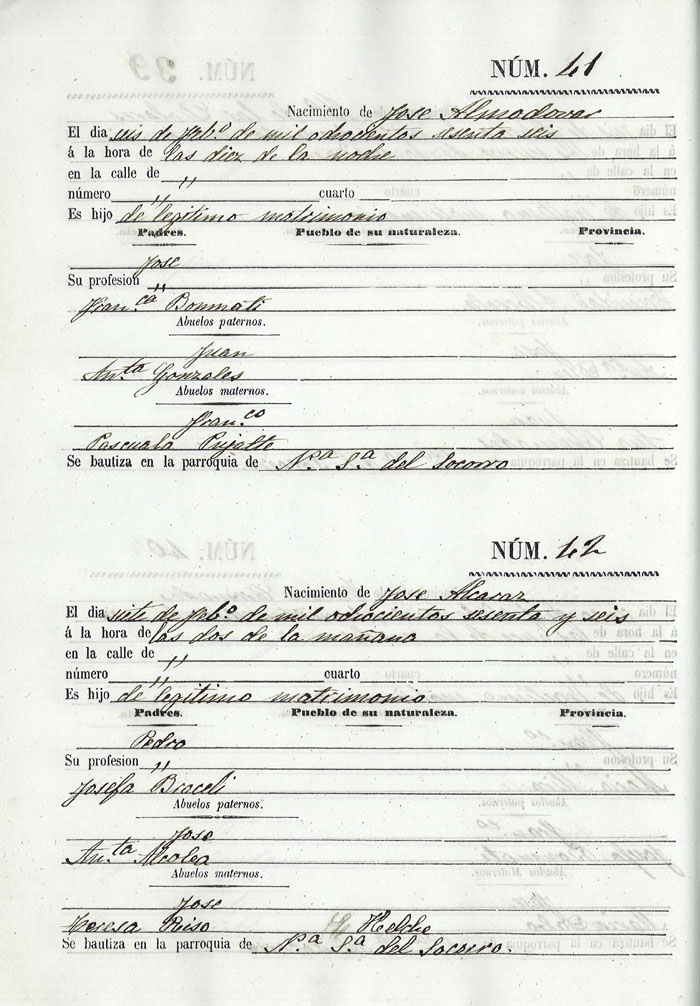 NÚM. 41
Nacimiento de Jose Almodovar
El dia seis de Feb.º de mil ochocientos sesenta seis
á la hora de las diez de la noche
en la calle de "
número " cuarto
Es hijo de legitimo matrimonio
Padres. Pueblo de su naturaleza. Provincia.
Jose
Su profesion "
Fran.ca Bonmati
Abuelos paternos.
Juan
An.ta Gonzales
Abuelos maternos.
Fran.co
Pascuala Pujalte
Se bautiza en la parroquia de N.ª S.ª del Socorro
NÚM. 42
Nacimiento de Jose Alcaraz
El dia siete de Feb.º de mil ochocientos sesenta y seis
á la hora de las dos de la mañana
en la calle de "
número " cuarto
Es hijo de legitimo matrimonio
Padres. Pueblo de su naturaleza. Provincia.
Pedro
Su profesion "
Josefa
Abuelos paternos.
Jose
An.ta Alcolea
Abuelos maternos.
Jose
Teresa Riso Helche
Se bautiza en la parroquia de N.ª S.ª del Socorro.